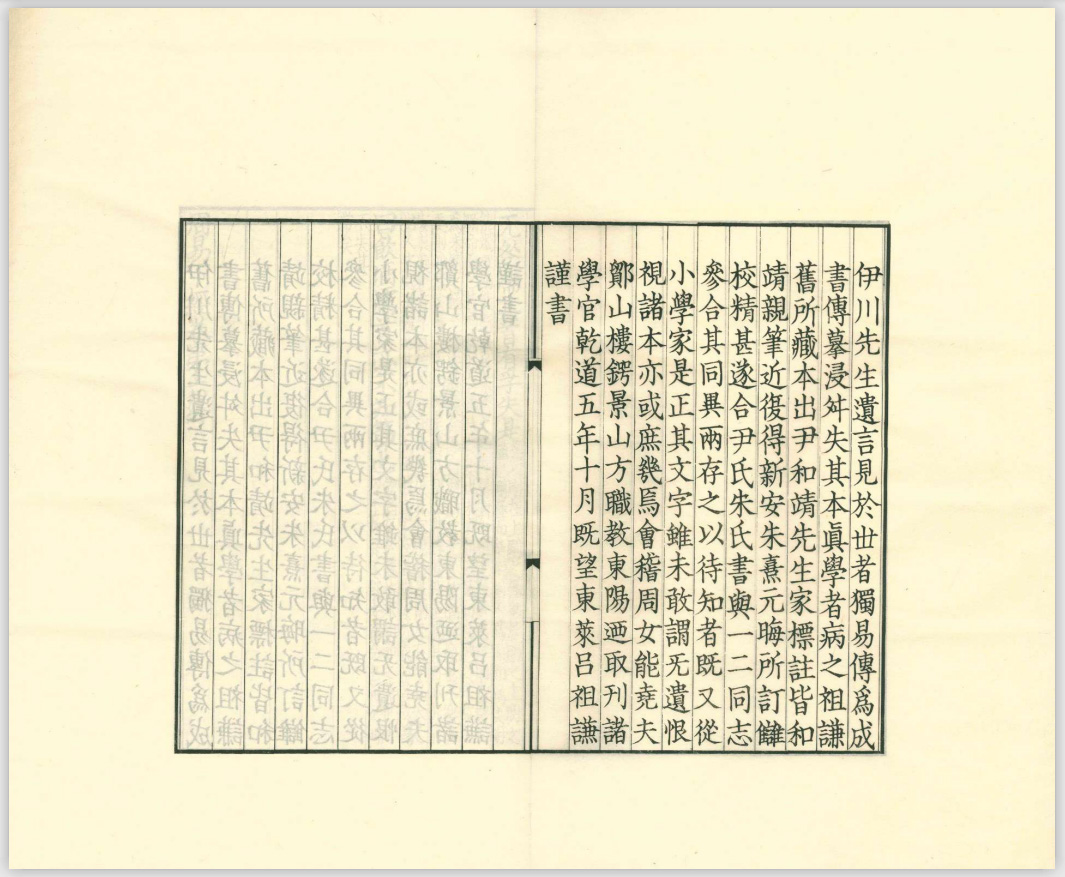 伊川先生遺言見於世者獨易傳爲成
書傳摹浸舛失其本眞學者病之祖謙
舊所藏本出尹和靖先生家標註皆和
靖親筆近復得新安朱熹元晦所訂讎
校精甚遂合尹氏朱氏書與一二同志
參合其同異兩存之以待知者既又從
小學家是正其文字雖未敢謂无遺恨
視諸本亦或庶幾焉會稽周女能堯夫
鄮山樓鍔景山方職教東陽迺取刊諸
學官乾道五年十月既望東萊吕祖謙
謹書